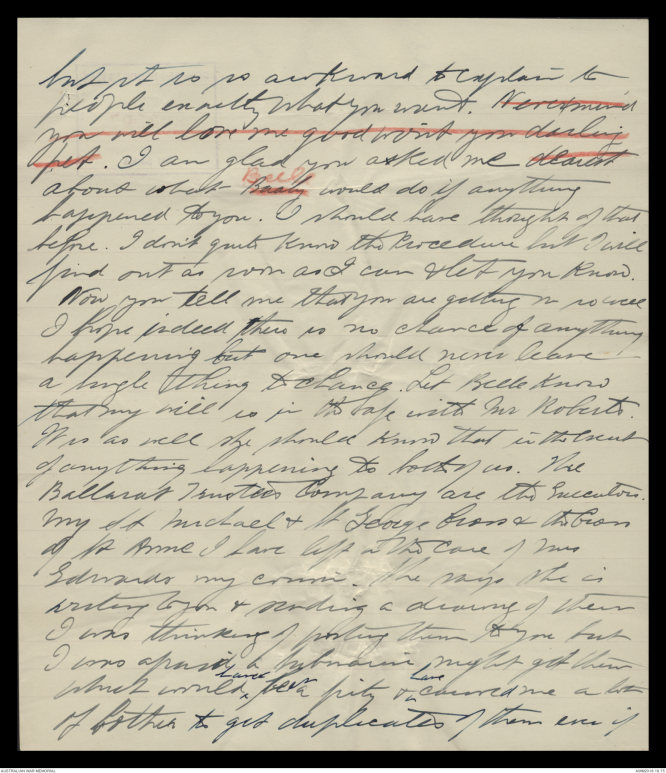 but it is so awkward to explain to
people exactly what you want. Nevermind
you will love me good wont you darling
Pet. I am glad you asked me dearest
about what Baaby Belle would do if anything
happened to you. I should have thought of that
before. I don't quite know the Procedure but I will
find out as soon as I can & let you know.
Now you tell me that you are getting on so well
I hope indeed there is no chance of anything
happening but one should never leave
a single thing to chance. Let Belle know
that my will is in the safe with Mr Roberts.
It is as well she should know that in the event
of anything happening to both of us. The
Ballarat Trustees Company are the Executors.
My St Michael & St George Cross & the Cross
of St Anne I have left in the care of Mrs
Edwards my cousin. She says she is
writing to you & sending a drawing of them
I was thinking of posting them to you but
I was afraid a submarine might get them
which would have been a pity & have caused me a lot
of bother to get duplicates of them even if
AUSTRALIAN WAR MEMORIAL